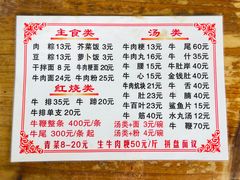 主食类 汤类
肉粽13元 芥菜饭3元 牛肉粳13元 牛尾60元
豆粽13元 萝卜饭3元 牛肉丸16元 牛什35元
干拌面8元 牛肉粳面20元 牛腰15元 牛肚岸40元
牛肉面24元 牛肉粉25元 牛心15元 金钱肚40元
红烧类 牛肉焿块21元 牛舌40元
牛排35元 牛蹄20元 牛肚21元 牛脑20元
牛排单支20元 牛百叶23元 鲨鱼片15元
牛鞭整条400元/条 牛筋50元 水九汤12元
牛尾300元/条起 汤面+面3元/碗 牛鞭70元
汤粉+粉4元/碗
青菜8-20元 生牛肉粳50元/斤 拼盘面议